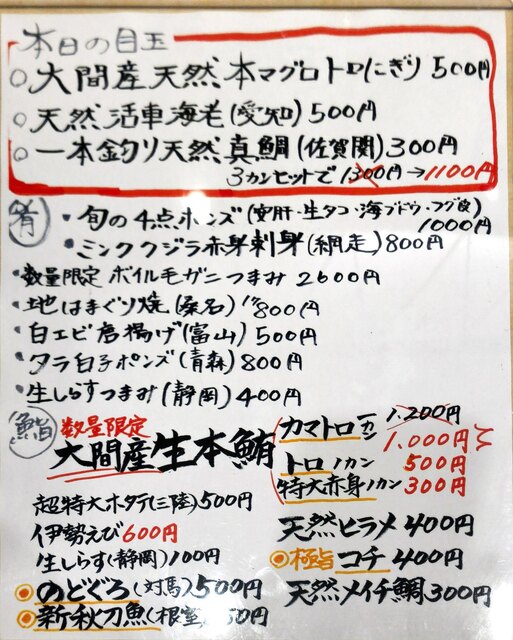 本日の目玉
○大間産天然本マグロトロにぎり 500円
○天然活車海老(愛知)500円
○一本釣り天然真鯛(佐賀関)300円
3カンセットで1300円→1100円
肴
・旬の4点ポンズ(安肝・生タコ・海ブドウ・フグ皮)
1000円
・ミンククジラ赤身刺身(網走)800円
・数量限定 ボイル毛ガニつまみ 2600円
・地はまぐり焼(桑名)1ケ800円
・白エビ唐揚げ(富山)500円
・タラ白子ポンズ(青森)800円
・生しらすつまみ(静岡)400円
鮨
数量限定
大間産生本鮪
カマトロ一カン 1,200円
1.000円
トロ1カン 500円
特大赤身1カン 300円
超特大ホタテ(三陸)500円
伊勢えび600円
生しらす(静岡)100円
のどぐろ(対馬)500円
新秋刀魚(根室)50円
天然ヒラメ400円
極旨 コチ400円
天然メイチ鯛300円